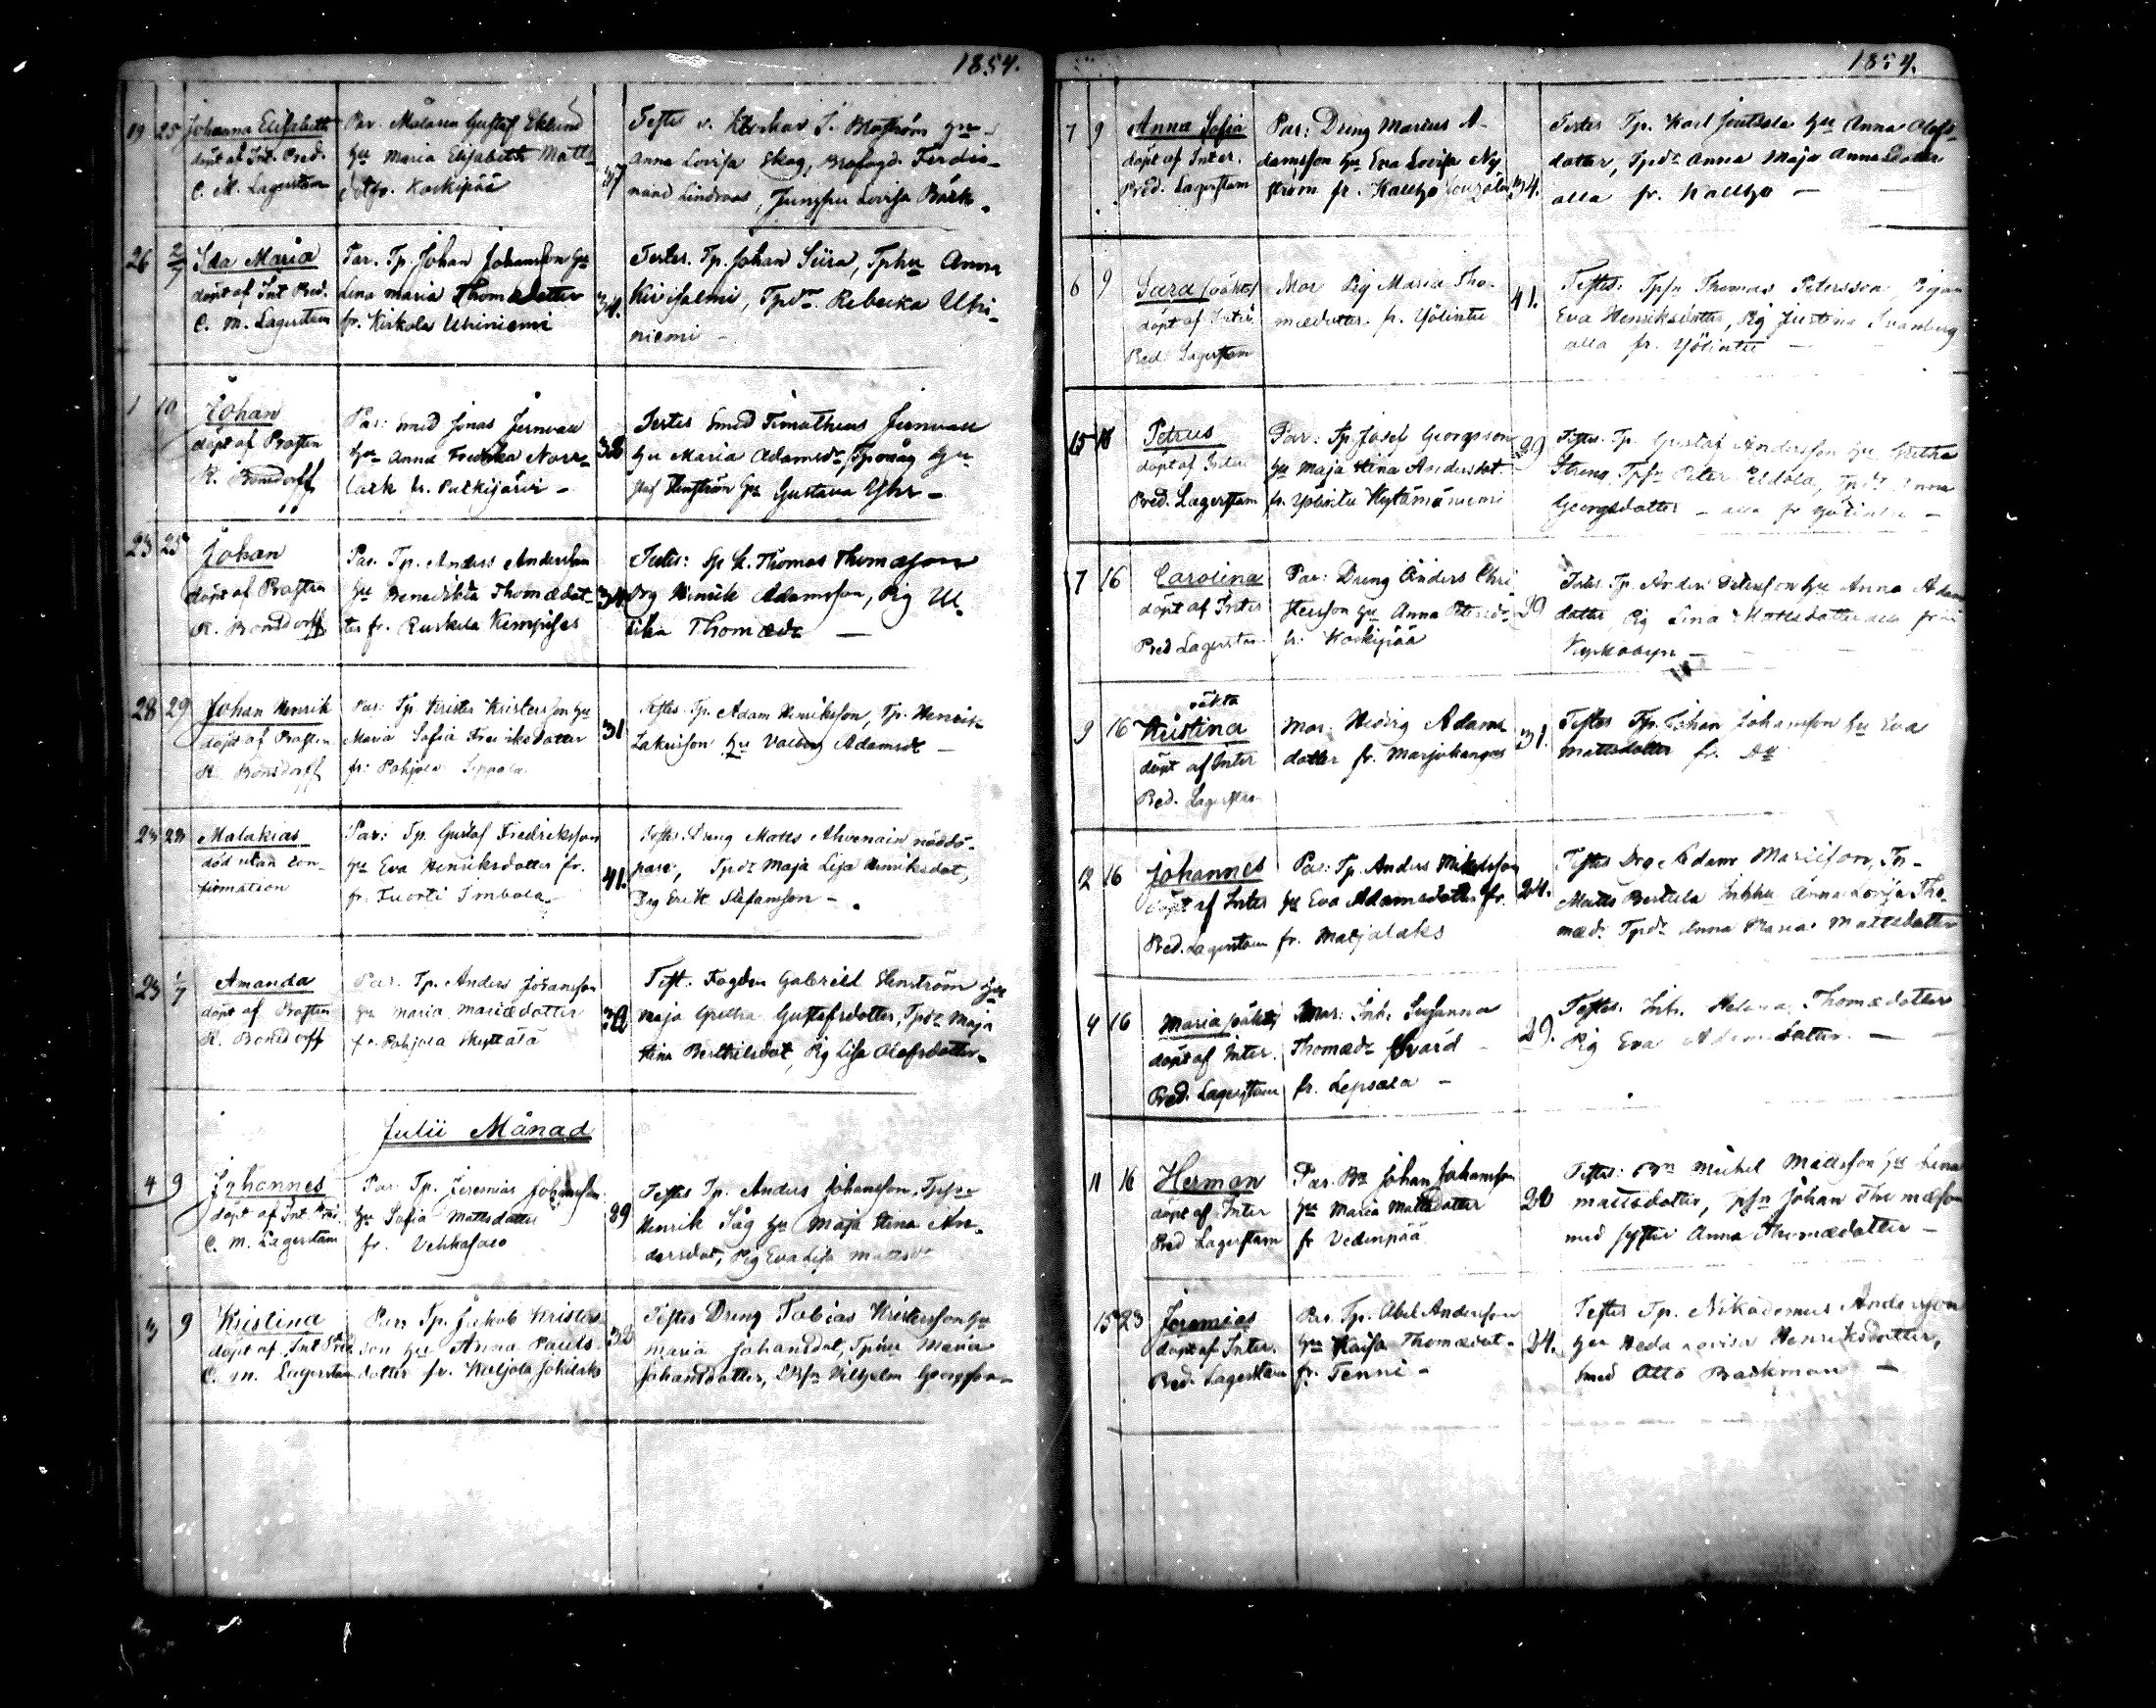 1854.
19 25 Johanna Elisabeth
döpt af Int. Pred.
C. M. Lagerstam
Par. Målaren Gustaf Eklund
hu Maria Elisabeth Matts
fr. Koskipää
37
Testes v. Klockar J. Blåström hu
Anna Lovisa Skog, Brofogd. Ferdi-
nand Lindroos, Jungfru Lovisa Bäck.
26 2/7 Ida Maria
döpt af Int Pred.
C. M. Lagerstam
Par. Tp. Johan Johansson hu
Lina Maria Thomædotter
fr. Kirkola Uhiniemi
34.
Testes. Tp. Johan Siira, Tphu Anna
Kirisalmi, Tpdr. Rebecka Uhi-
niemi -
1 10 Johan
döpt af Prosten
K. Bonsdorff
Par: Smed Jonas Jernvall
hu Anna Fredrika Norr-
lack fr. Putkijärvi -
38
Testes Smed Timotheus Jernvall
hu Maria Adamsdr
Henström hu Gustava Yhr -
23 25 Johan
döpt af Prosten
K. Bonsdorff
Par. Tp. Anders Andersson
hu Benedikta Thomædot-
ter fr. Ruskela Kempises
34
Testes: Thomas Thomasson
Drg Henrik Adamsson, Pig Ul
rika Thomædr -
28 29 Johan Henrik
döpt af Prosten
K. Bonsdorff
Par: Tp. Krister Kristersson hu
Maria Sofia Fredriksdotter
fr: Pohjola Seppälä
31
Testes Tp. Adam Henriksson, Tp. Henrik
hu Valborg Adamsdr -
23 23 Malakias
död utan con-
firmation
Par: Tp. Gustaf Fredriksson
hu Eva Henriksdotter fr.
fr. Tuorti Imbala
41.
Testes. Dreng Matts Ahvenain nöddö-
pare, Tpdr Maja Lisa Henriksdot,
Drg Erik Stefansson -
23 1/7 Amanda
döpt af Prosten
K. Bonsdorff
Par. Tp. Anders Johansson
hu Maria Mariædotter
fr. Pohjola Skyttälä
32
Test. Fogden Gabriel Henström hu
Maja Gretha Gustafsdotter, Tpdr Maja
Stina Berthilsdot, Pig Lisa Olofsdotter
Julii Månad
4 9 Johannes
döpt af Int. Pred
C. M. Lagerstam
Par Tp. Jeremias Johansson
hu Sofia Mattsdotter
fr. Vehkasalo
39
Testes Tp. Anders Johansson, Tpsn
Henrik Såg hu Maja Stina An-
dersdot, Pig Eva Lisa Mattsdr
3 9 Kristina
döpt af Int Pred
C. M. Lagerstam
Par Tp. Jakob Kristers
son hu Anna Pauls
dotter fr. Karjola Jokilaks
32
Testes Dreng Tobias Kristersson hu
Maria Johansdot, Tphu Maria
Johansdotter, Vilhelm Georgsson
1854.
7 9 Anna Sofia
döpt af Inter.
Pred. Lagerstam
Par: Dreng Marius A-
damsson hu Eva Lovisa Ny
ström fr. Kallyo
34.
Testes Tp. Karl Joutsela hu Anna Olofs
dotter, Tpdr Anna Maja Anna
alla fr. Kallyo -
6 9 Sara (oäkta)
döpt af Inter
Pred. Lagerstam
Mor Pig Maria Tho-
mædotter fr. Yölintu
41.
Testes: Tpsn Thomas Petersson,
Eva Henriksdotter, Pig Justina Svanberg
alla fr. Yölintu -
15 16 Petrus
döpt af Inter
Pred. Lagerstam
Par: Tp. Josef Georgsson
hu Maja Stina Andersdot.
fr. Yölintu Kytömäniemi
29
Testes Tp. Gustaf Andersson hu Gretha
Streng, Tpsn Peter Peldola, Tpdr Anna
Georgsdotter - alla fr Yölintu -
7 16 Carolina
döpt af Inter
Pred Lagerstam
Par: Dreng Anders Chri
stersson hu Anna Petersdr
fr. Koskipää
39
Testes Tp. Anders Petersson hu Anna Adam
dotter, Pig Lina Mattsdotter alla från
Kyrkobyn -
9 16 oäkta
Kristina
döpt af Inter
Pred. Lagerstam
Mor: Hedvig Adams
dotter fr. Marjokangas
31.
Testes Tp. Johan Johansson hu Eva
Mattsdotter fr. Do
12 16 Johannes
döpt af Inter
Pred. Lagerstam
Par: Tp. Anders Mikelsson
hu Eva Adamsdotter fr.
fr. Marjalaks
24.
Testes Drg Adam Mariisson,
Matts Bertula Anna Lovisa Tho-
mædr Tpdr Anna Maria Mattsdotter
4 16 Maria (oäkta)
döpt af Inter.
Pred. Lagerstam
Mor: Inh. Susanna
Thomædr Svärd -
fr. Lepsala -
29.
Testes. Inh. Helena Thomædotter
Pig Eva Adamsdotter -
11 16 Herman
döpt af Inter
Pred Lagerstam
Par. Bn Johan Johansson
hu Maria Mattsdotter
fr Vedenpää
20
Testes: Bn Mickel Mattsson hu Lena
Mattsdotter, Johan Thomæson
med syster Anna Thomædotter -
15 23 Jeremias
döpt af Inter.
Pred. Lagerstam
Par. Tp. Abel Andersson
hu Kaisa Thomædot-
fr. Tenni -
24.
Testes Tp. Nikodemus Andersson
hu Heda Lovisa Henriksdotter,
Smed Otto Backman -